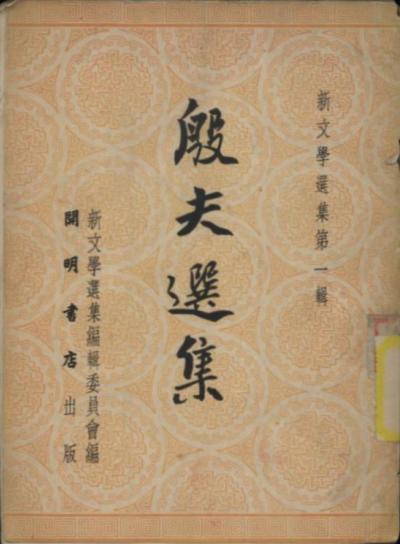 新文學選集第一輯
殷夫選集
新文學選集編輯委員會編
開明書店出版